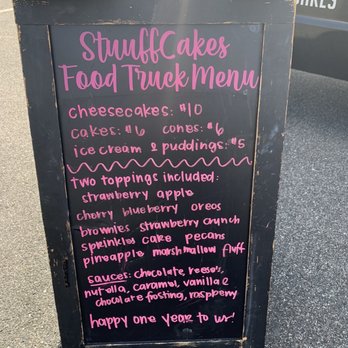 CAKES
StuuffCakes
Food Truck Menu
cheesecakes: $10
cakes: $6 cones: $6
ice cream & puddings: $5
two toppings included:
strawberry apple
cherry blueberry oreos
brownies strawberry crunch
sprinkles cake pecans
pineapple marshmallow fluff
sauces: chocolate, reeses,
nutella, caramel, vanilla &
chocolate frosting, raspberry
happy one year to us!